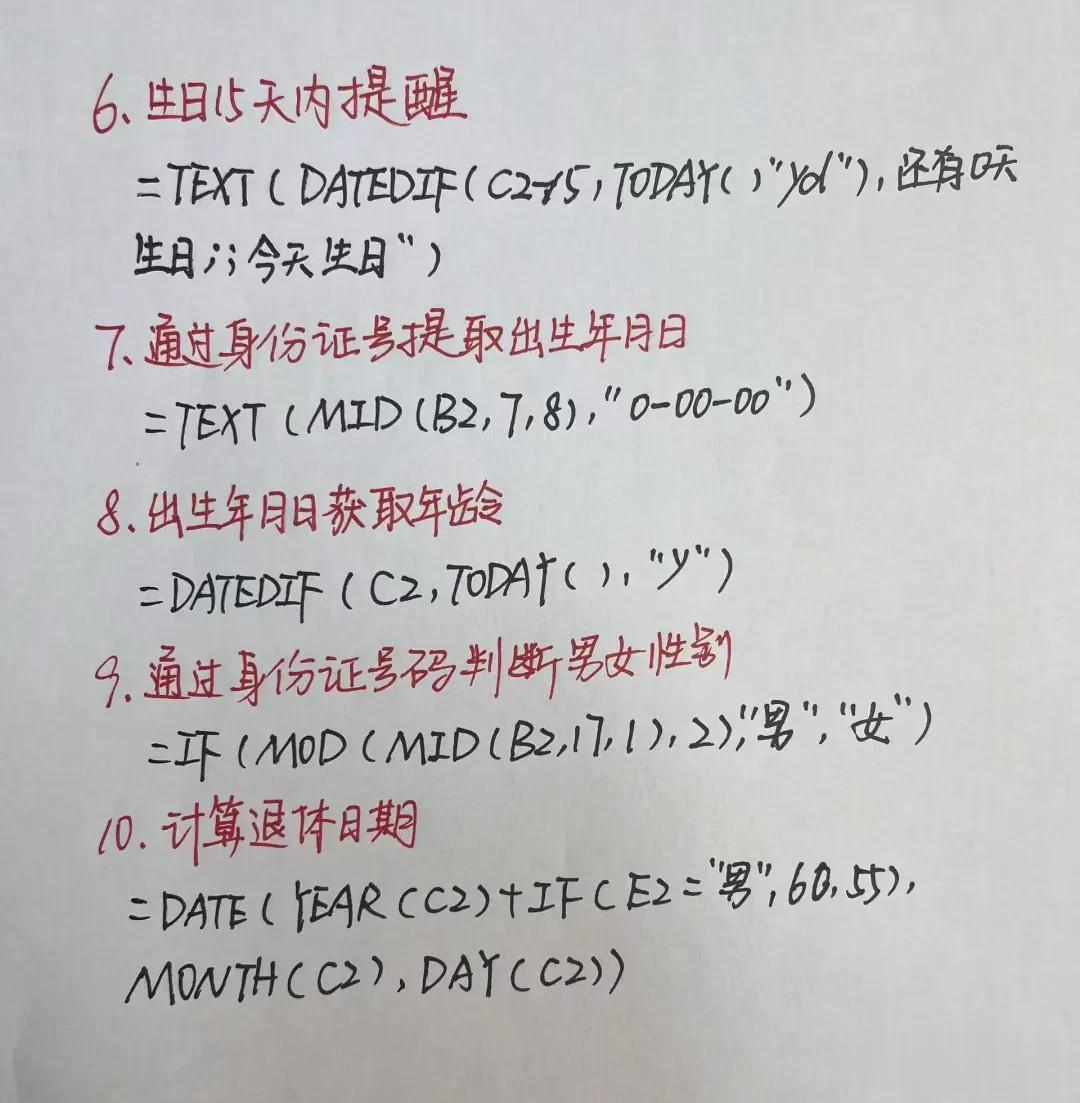 6、生日15天内提醒
=TEXT(DATEDIF(C2-15,TODAY(),"yd"),还有0天
生日;;今天生日")
7、通过身份证号提取出生年月日
=TEXT(MID(B2,7,8),"0-00-00")
8.出生年月日获取年龄
=DATEDIF(C2,TODAY(),"y")
9.通过身份证号码判断男女性别
=IF(MOD(MID(B2,17,1),2),"男","女")
10.计算退休日期
=DATE(YEAR(C2)+IF(E2="男",60,55),
MONTH(C2),DAY(C2))